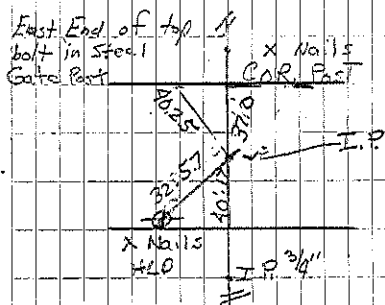 East End of top
bolt in Steel
Gate Post
N
X Nails
COR. Post
40.25
37.0
I.P.
32.57
40.17
X Nails
HLO
I.P. 3/4"